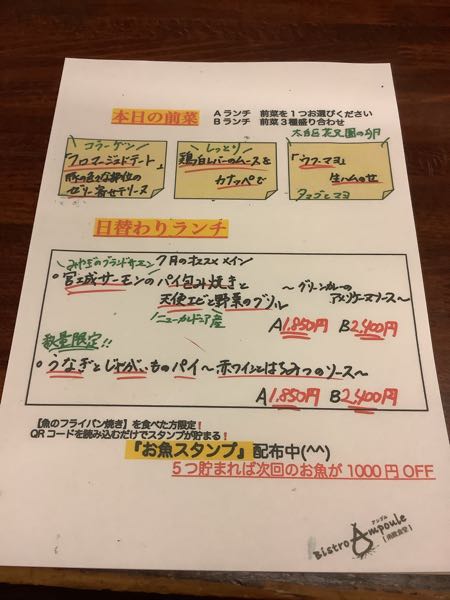 本日の前菜
Aランチ 前菜を1つお選びください
Bランチ 前菜3種盛り合わせ
コラーゲン
「フロマージュドテート」
豚の色々な部位の
ゼリー寄せテリーヌ
しっとり
鶏白レバーのムースを
カナッペで
太白区花兄園の卵
「ウフマヨ」
生ハムのせ
タマゴとマヨ
日替わりランチ
みやぎのブランドサーモン 7月のオススメメイン
○宮城サーモンのパイ包み焼きと
天使エビと野菜のグリル
ニューカレドニア産
～グリーンカレーの
アメリケーヌソース～
A1,850円 B2,400円
数量限定!!
○うなぎとじゃがいものパイ～赤ワインとはちみつのソース～
A1,850円 B2,400円
【魚のフライパン焼き】を食べた方限定!
QRコードを読み込むだけでスタンプが貯まる!
『お魚スタンプ』配布中(^^)
5つ貯まれば次回のお魚が1000円OFF
アンプル
Bistro Ampoule